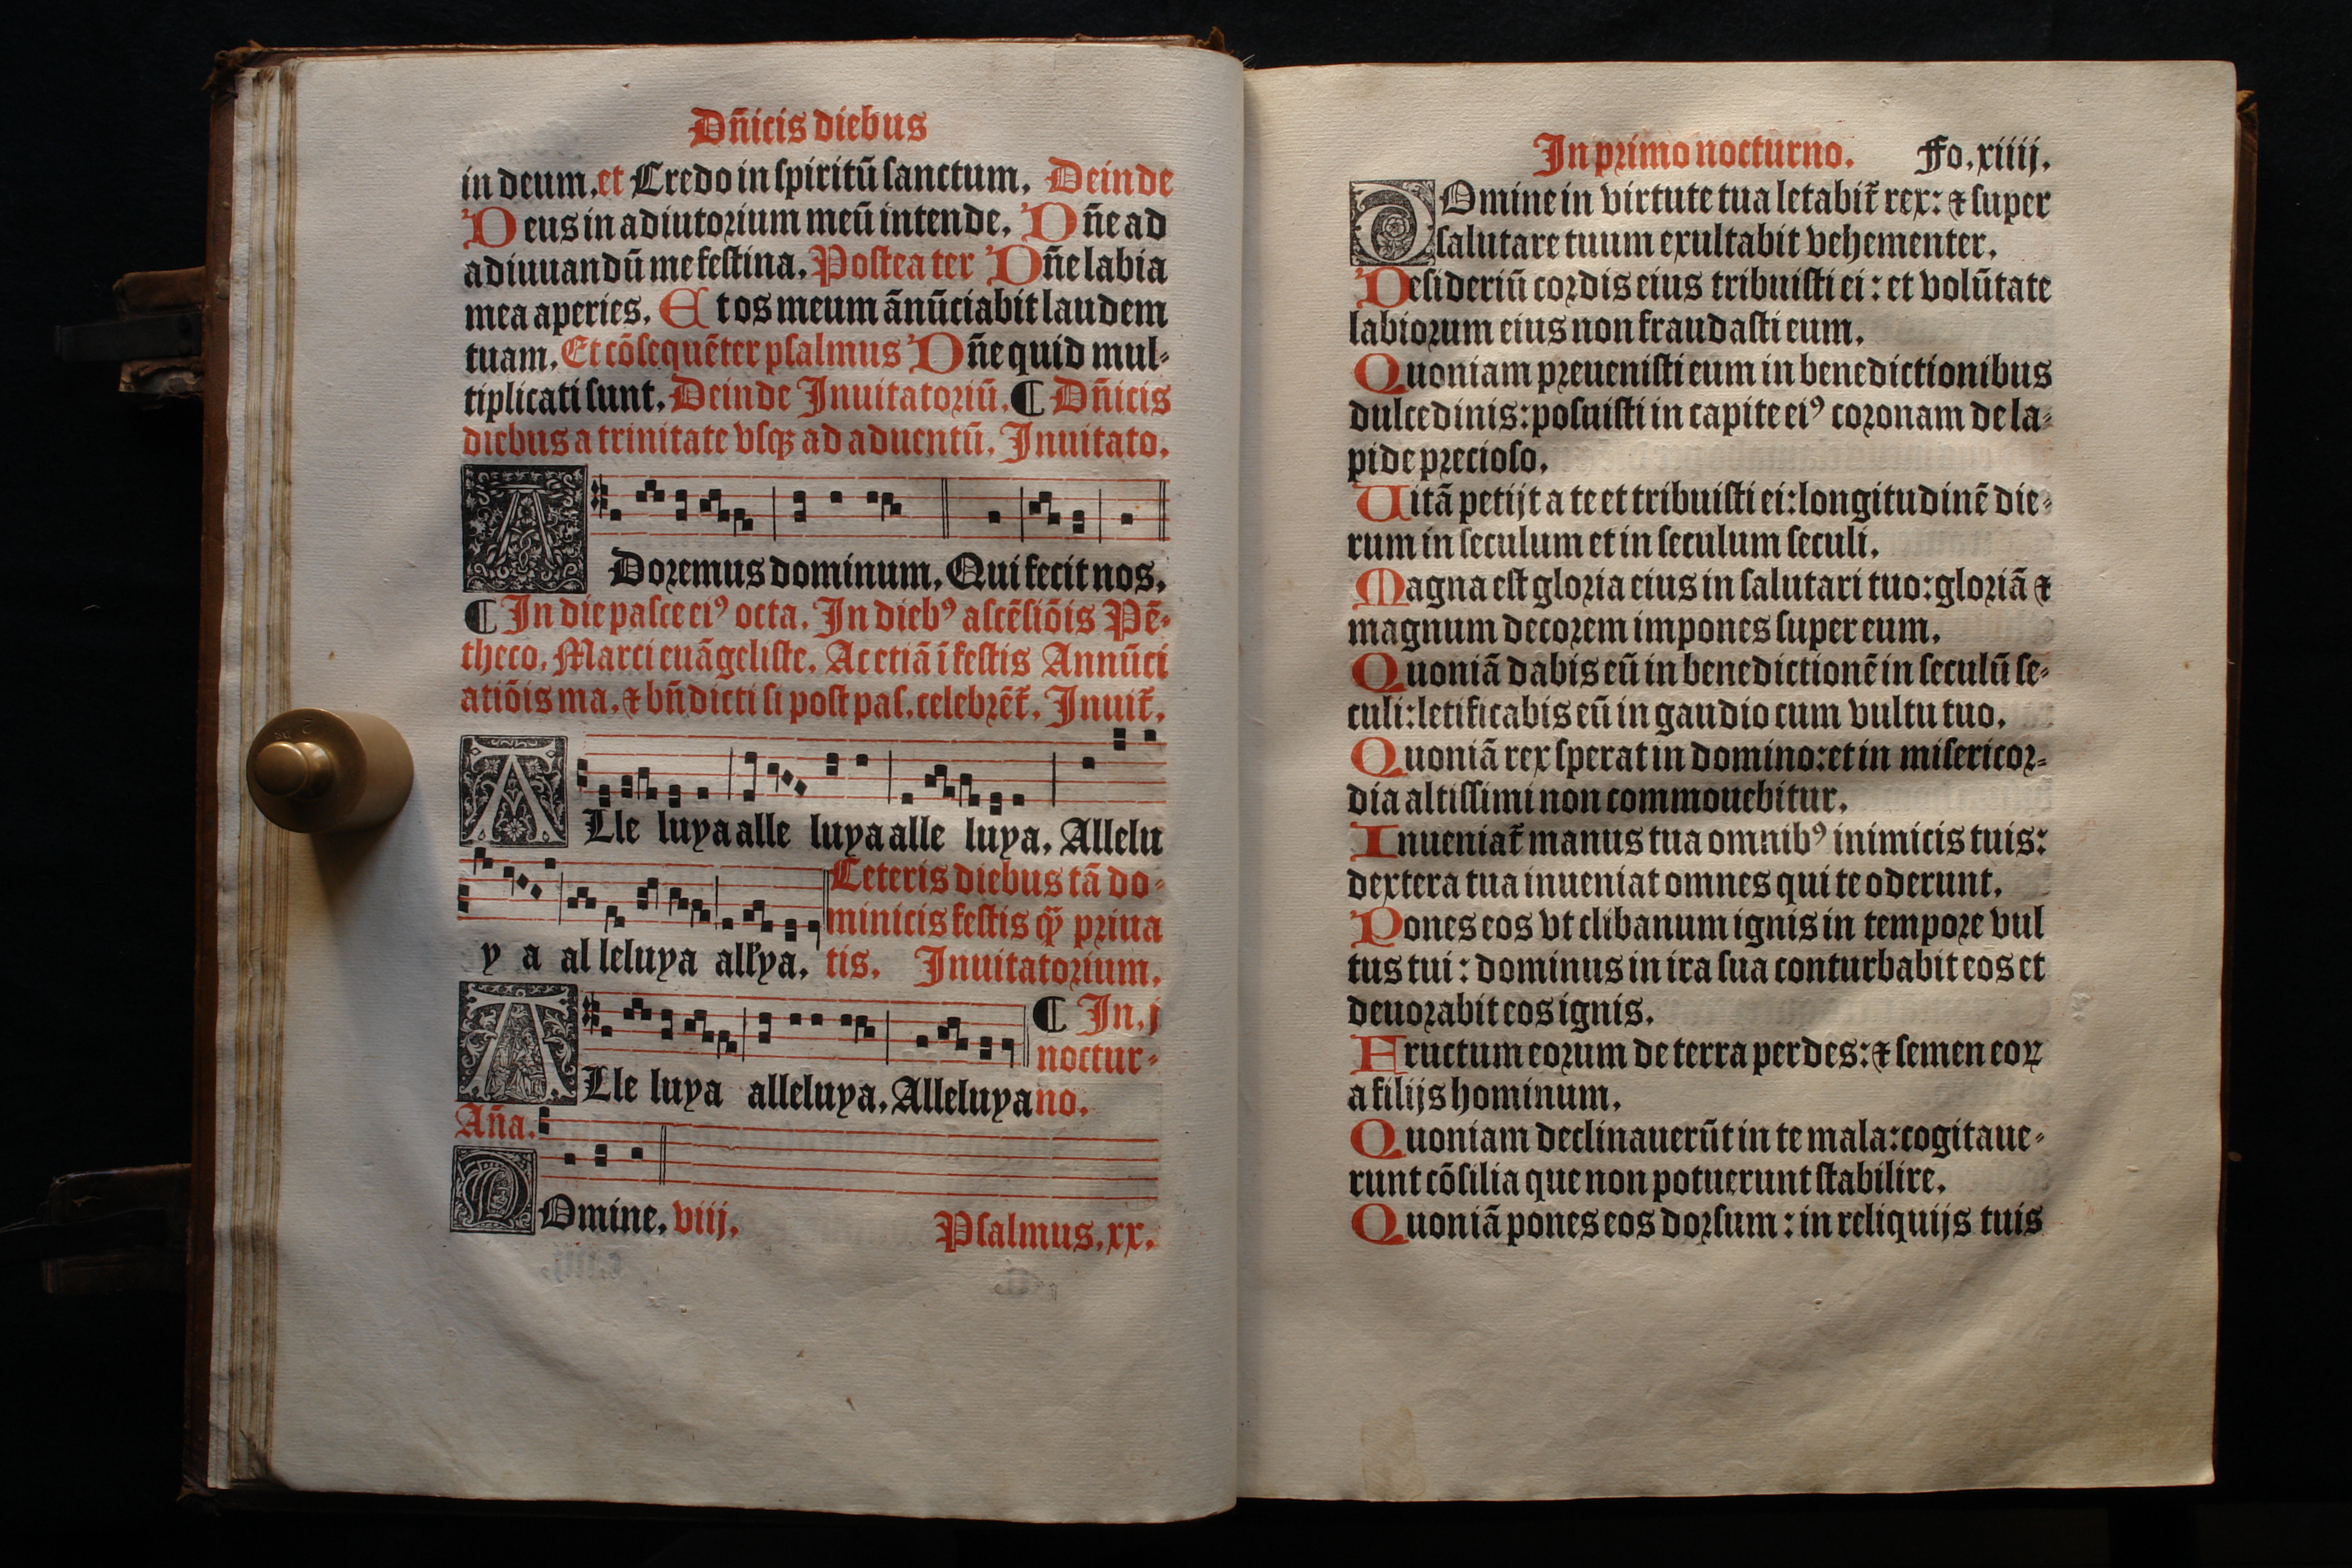 Dñicis diebus
in deum. et Credo in ſpiritū ſanctum. Deinde
Deus in adiutorium meū intende. Dñe ad
adiuuandū me feſtina. Poſtea ter Dñe labia
mea aperies. Et os meum ānūciabit laudem
tuam. Et cōſequēter pſalmus Dñe quid mul⸗
tiplicati ſunt. Deinde Inuitatoriū. ¶ Dñicis
diebus a trinitate vſqꝫ ad aduentū. Inuitato.
ADoremus dominum. Qui fecit nos.
¶ In die paſce eiꝰ octa. In diebꝰ aſcēſiōis Pē⸗
theco. Marci euāgeliſte. Ac etiā ī feſtis Annūci
atiōis ma. ⁊ bn̄dicti ſi poſt paſ. celebrēt᷑. Inuit᷑.
ALle luya alle luya alle luya. Allelu
Ceteris diebus tā do⸗
minicis feſtis qͣꝫ priua
y a al leluya all'ya. tis. Inuitatorium.
¶ In. j
noctur⸗
ALle luya alleluya. Alleluya no.
Aña.
DOmine. viij. Pſalmus. xx.
In primo nocturno. Fo. xiiij.
DOmine in virtute tua letabit᷑ rex: ⁊ ſuper
ſalutare tuum exultabit vehementer.
Deſideriū cordis eius tribuiſti ei: et volūtate
labiorum eius non fraudaſti eum.
Quoniam preueniſti eum in benedictionibus
dulcedinis: poſuiſti in capite eiꝰ coronam de la⸗
pide precioſo.
Uitā petijt a te et tribuiſti ei: longitudinē die⸗
rum in ſeculum et in ſeculum ſeculi.
Magna eſt gloria eius in ſalutari tuo: gloriā ⁊
magnum decorem impones ſuper eum.
Quoniā dabis eū in benedictionē in ſeculū ſe⸗
culi: letificabis eū in gaudio cum vultu tuo.
Quoniā rex ſperat in domino: et in miſericor⸗
dia altiſſimi non commouebitur.
Inueniat᷑ manus tua omnibꝰ inimicis tuis:
dextera tua inueniat omnes qui te oderunt.
Pones eos vt clibanum ignis in tempore vul
tus tui: dominus in ira ſua conturbabit eos et
deuorabit eos ignis.
Fructum eorum de terra perdes: ⁊ ſemen eoꝝ
a filijs hominum.
Quoniam declinauerūt in te mala: cogitaue⸗
runt cōſilia que non potuerunt ſtabilire.
Quoniā pones eos dorſum: in reliquijs tuis